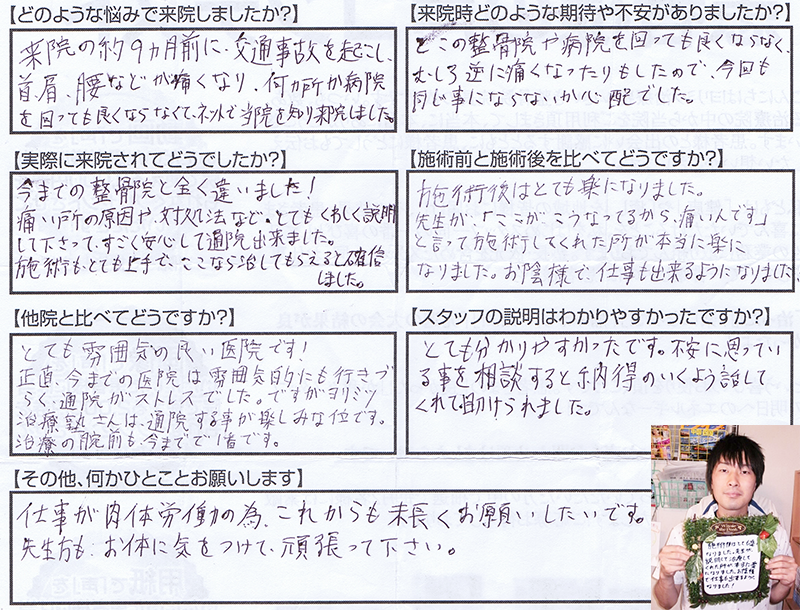 【どのような悩みで来院しましたか?】
来院の約9ヵ月前に、交通事故を起こし、
首、肩、腰などが痛くなり、何カ所か病院
を回っても良くならなくて、ネットで当院を知り来院しました。
【来院時どのような期待や不安がありましたか?】
どこの整骨院や病院を回っても良くならなく、
むしろ逆に痛くなったりもしたので、今回も
同じ事にならないか心配でした。
【実際に来院されてどうでしたか?】
今までの整骨院と全く違いました!
痛い所の原因や、対処法など。とてもくわしく説明
して下さって、すごく安心して通院出来ました。
施術もとても上手で、ここなら治してもらえると確信
しました。
【施術前と施術後を比べてどうですか?】
施術後はとても楽になりました。
先生が、「ここが、こうなってるから、痛いんです」
と言って施術してくれた所が本当に楽に
なりました。お陰様で、仕事も出来るようになりました。
【他院と比べてどうですか?】
とても雰囲気の良い医院です!
正直、今までの医院は雰囲気的にも行きづ
らく、通院がストレスでした。ですがヨリミツ
治療塾さんは、通院する事が楽しみな位です。
治療の腕前も、今までで1番です。
【スタッフの説明はわかりやすかったですか?】
とても分かりやすかったです。不安に思ってい
る事を相談すると納得のいくよう話して
くれて、助けられました。
【その他、何かひとことお願いします】
仕事が肉体労働の為、これからも末長くお願いしたいです。
先生方も、お体に気をつけて、頑張って下さい。
施術後はとても楽に
なりました。先生が、
説明して治療して
くれた所が、本当に楽
になりました。お陰様
で、仕事も出来るように
なりました!